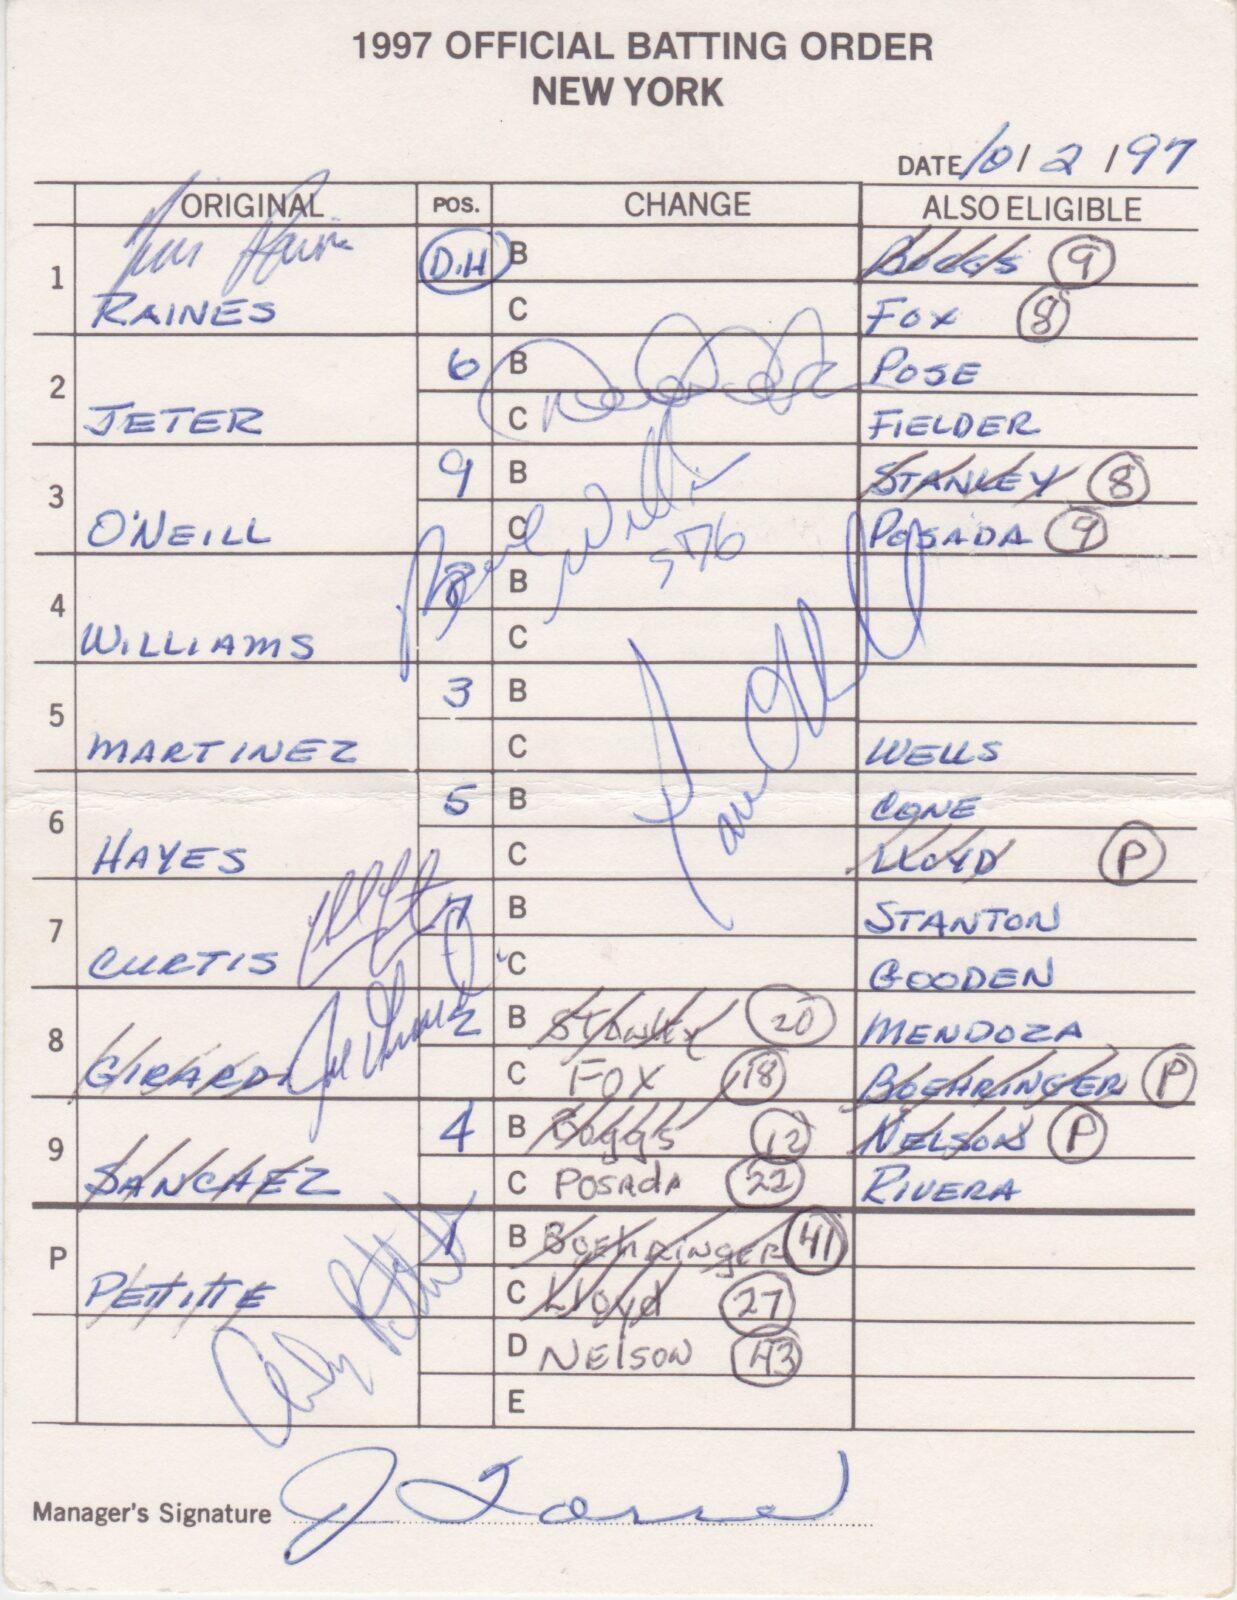 1997 OFFICIAL BATTING ORDER
NEW YORK
DATE 10/2/97
ORIGINAL POS. CHANGE ALSO ELIGIBLE
Tim Raines
1 RAINES D.H B BOGGS 9
C FOX 8
2 JETER 6 B POSE
C FIELDER
Derek Jeter
3 O'NEILL 9 B STANLEY 8
C POSADA 9
Bernie Williams
4 WILLIAMS 8 B
C
Paul O'Neill
5 MARTINEZ 3 B
C WELLS
6 HAYES 5 B CONE
C LLOYD P
7 CURTIS 7 B STANTON
C GOODEN
8 GIRARDI 2 B Stanley 20 MENDOZA
C FOX 18 BOEHRINGER P
Joe Girardi
9 SANCHEZ 4 B Boggs 12 NELSON P
C POSADA 22 RIVERA
P PETTITTE 1 B BOEHRINGER 41
C Lloyd 27
D NELSON 43
E
Andy Pettitte
Manager's Signature J Torre